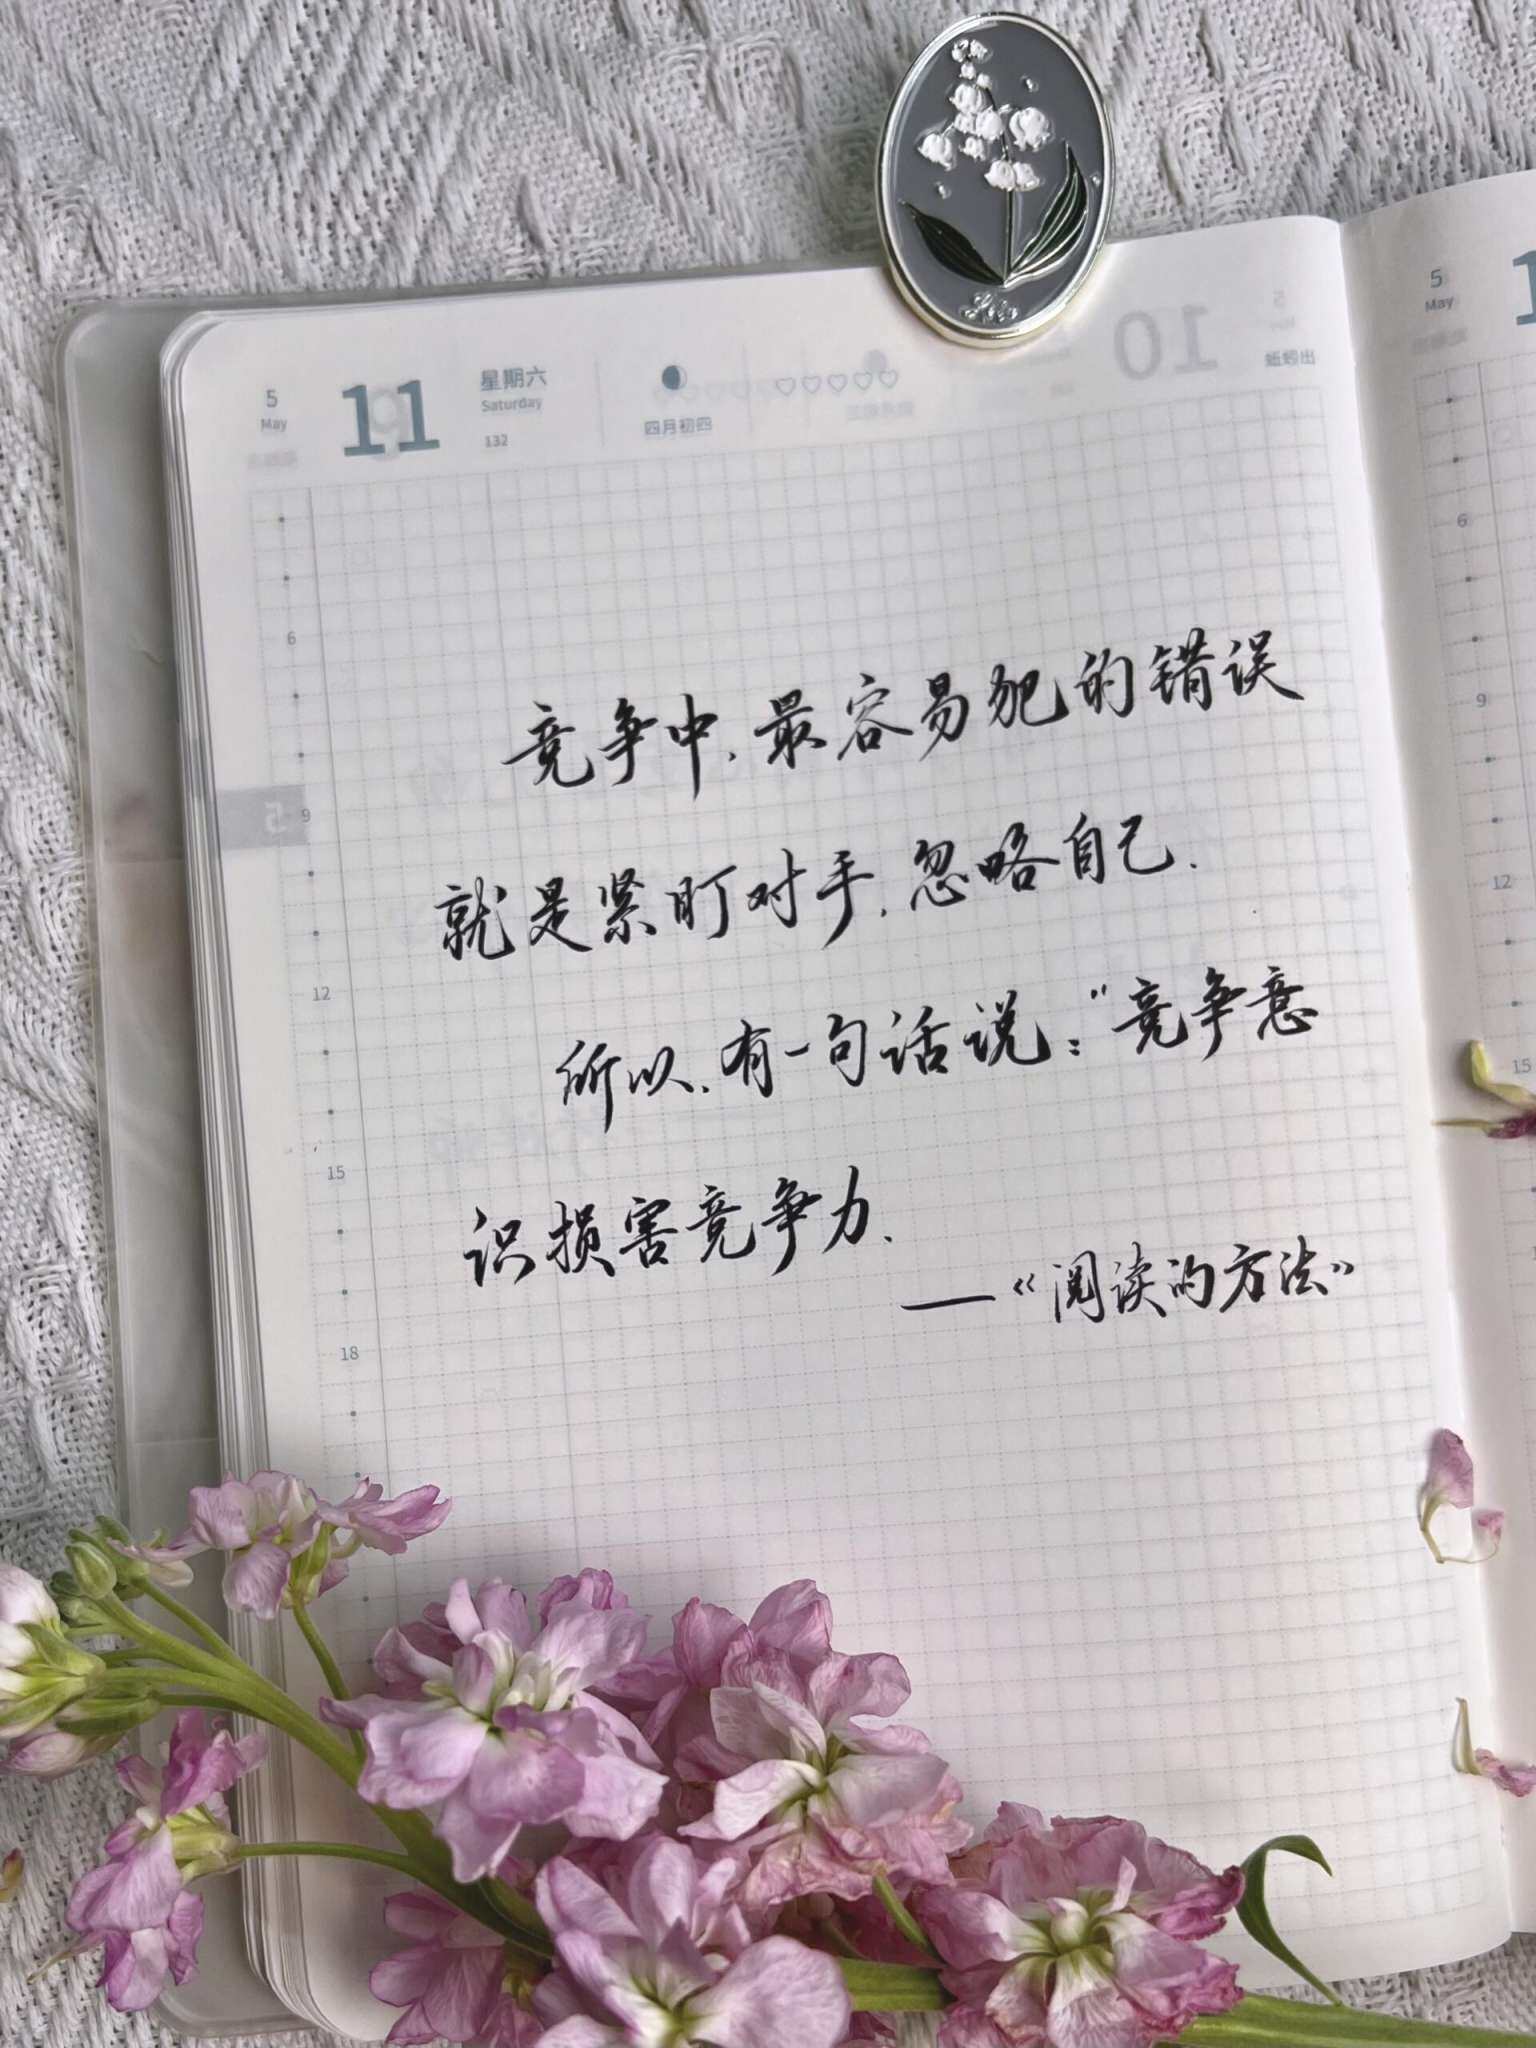 5
May
11
星期六
Saturday
132
四月初四
竞争中.最容易犯的错误
就是紧盯对手.忽略自己.
所以.有一句话说:"竞争意
识损害竞争力.
——《阅读的方法》
6
9
12
15
18
5
May
6
9
12
15